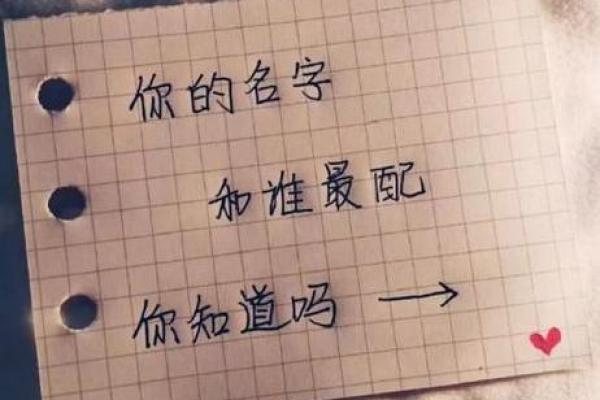 你的名字
和谁最配
你知道吗 →